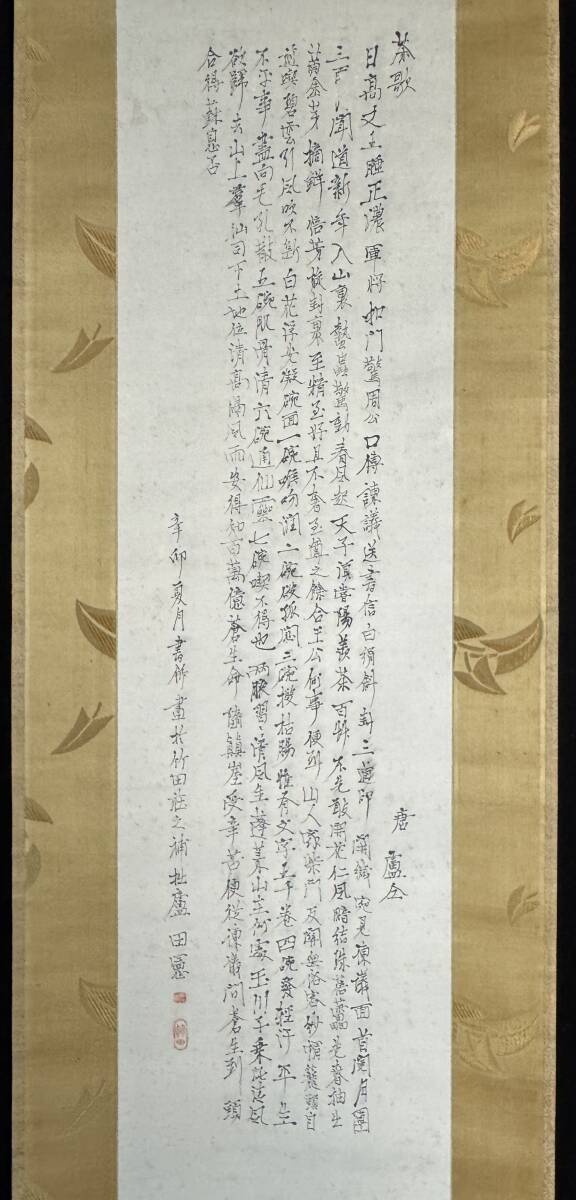 茶歌
唐　盧仝
日高丈五睡正濃軍將扣門驚周公口傳諫議送書信白絹斜封三道印開緘宛見諫議面首閱月團
三百片聞道新年入山裏蟄蟲驚動春風起天子須嘗陽羨茶百艸不先敢開花仁風暗結珠蓓蕾先春抽出
黃金芽摘鮮焙芳旋封裹至精至好且不奢至尊之餘合王公何事便到山人家柴門反關無俗客紗帽籠頭自
煎喫碧雲引風吹不斷白花浮光凝碗面一碗喉吻潤二碗破孤悶三碗搜枯腸惟有文字五千卷四碗發輕汗平生
不平事盡向毛孔散五碗肌骨清六碗通仙靈七碗喫不得也兩腋習習清風生蓬萊山在何處玉川子乘此清風
欲歸去山上羣仙司下土地位清高隔風雨安得知百萬億蒼生命墮巔崖受辛苦便從諫議問蒼生到頭
合得蘇息否
辛卯夏月書作畫於竹田莊之補拙廬　田憲